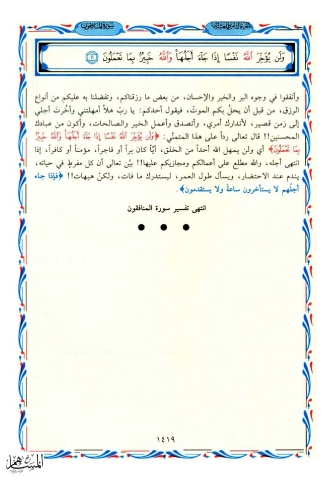 سورة المنافقون
وَلَن يُؤَخِّرَ اللَّهُ نَفْسًا إِذَا جَاءَ أَجَلُهَا وَاللَّهُ خَبِيرٌ بِمَا تَعْمَلُونَ
وأنفقوا في وجوه البر والخير والإحسان، من بعض ما رزقناكم، وتفضلنا به عليكم من أنواع
الرزق، من قبل أن يحلَّ بكم الموتُ، فيقول أحدكم: يا ربّ هلاّ أمهلتني وأخَّرت أجلي
إلى زمن قصير، لأتدارك أمري، وأتصدق وأعمل الخير والصالحات، وأكون من عبادك
المحسنين!! قال تعالى رداً على هذا المتمنّي: ﴿وَلَن يُؤَخِّرَ اللَّهُ نَفْسًا إِذَا جَاءَ أَجَلُهَا وَاللَّهُ خَبِيرٌ
بِمَا تَعْمَلُونَ﴾ أي ولن يمهل الله أحداً من الخلق، أيّاً كان براً أو فاجراً، مؤمناً أو كافراً، إذا
انتهى أجله، والله مطلع على أعمالكم ومجازيكم عليها!! بيَّن تعالى أن كل مفرطٍ في حياته،
يندم عند الاحتضار، ويسأل طول العمر، ليستدرك ما فات، ولكنْ هيهات!! ﴿فإذا جاء
أجلُهم لا يستأخرون ساعةً ولا يستقدمون﴾.
انتهى تفسير سورة المنافقون
١٤١٩